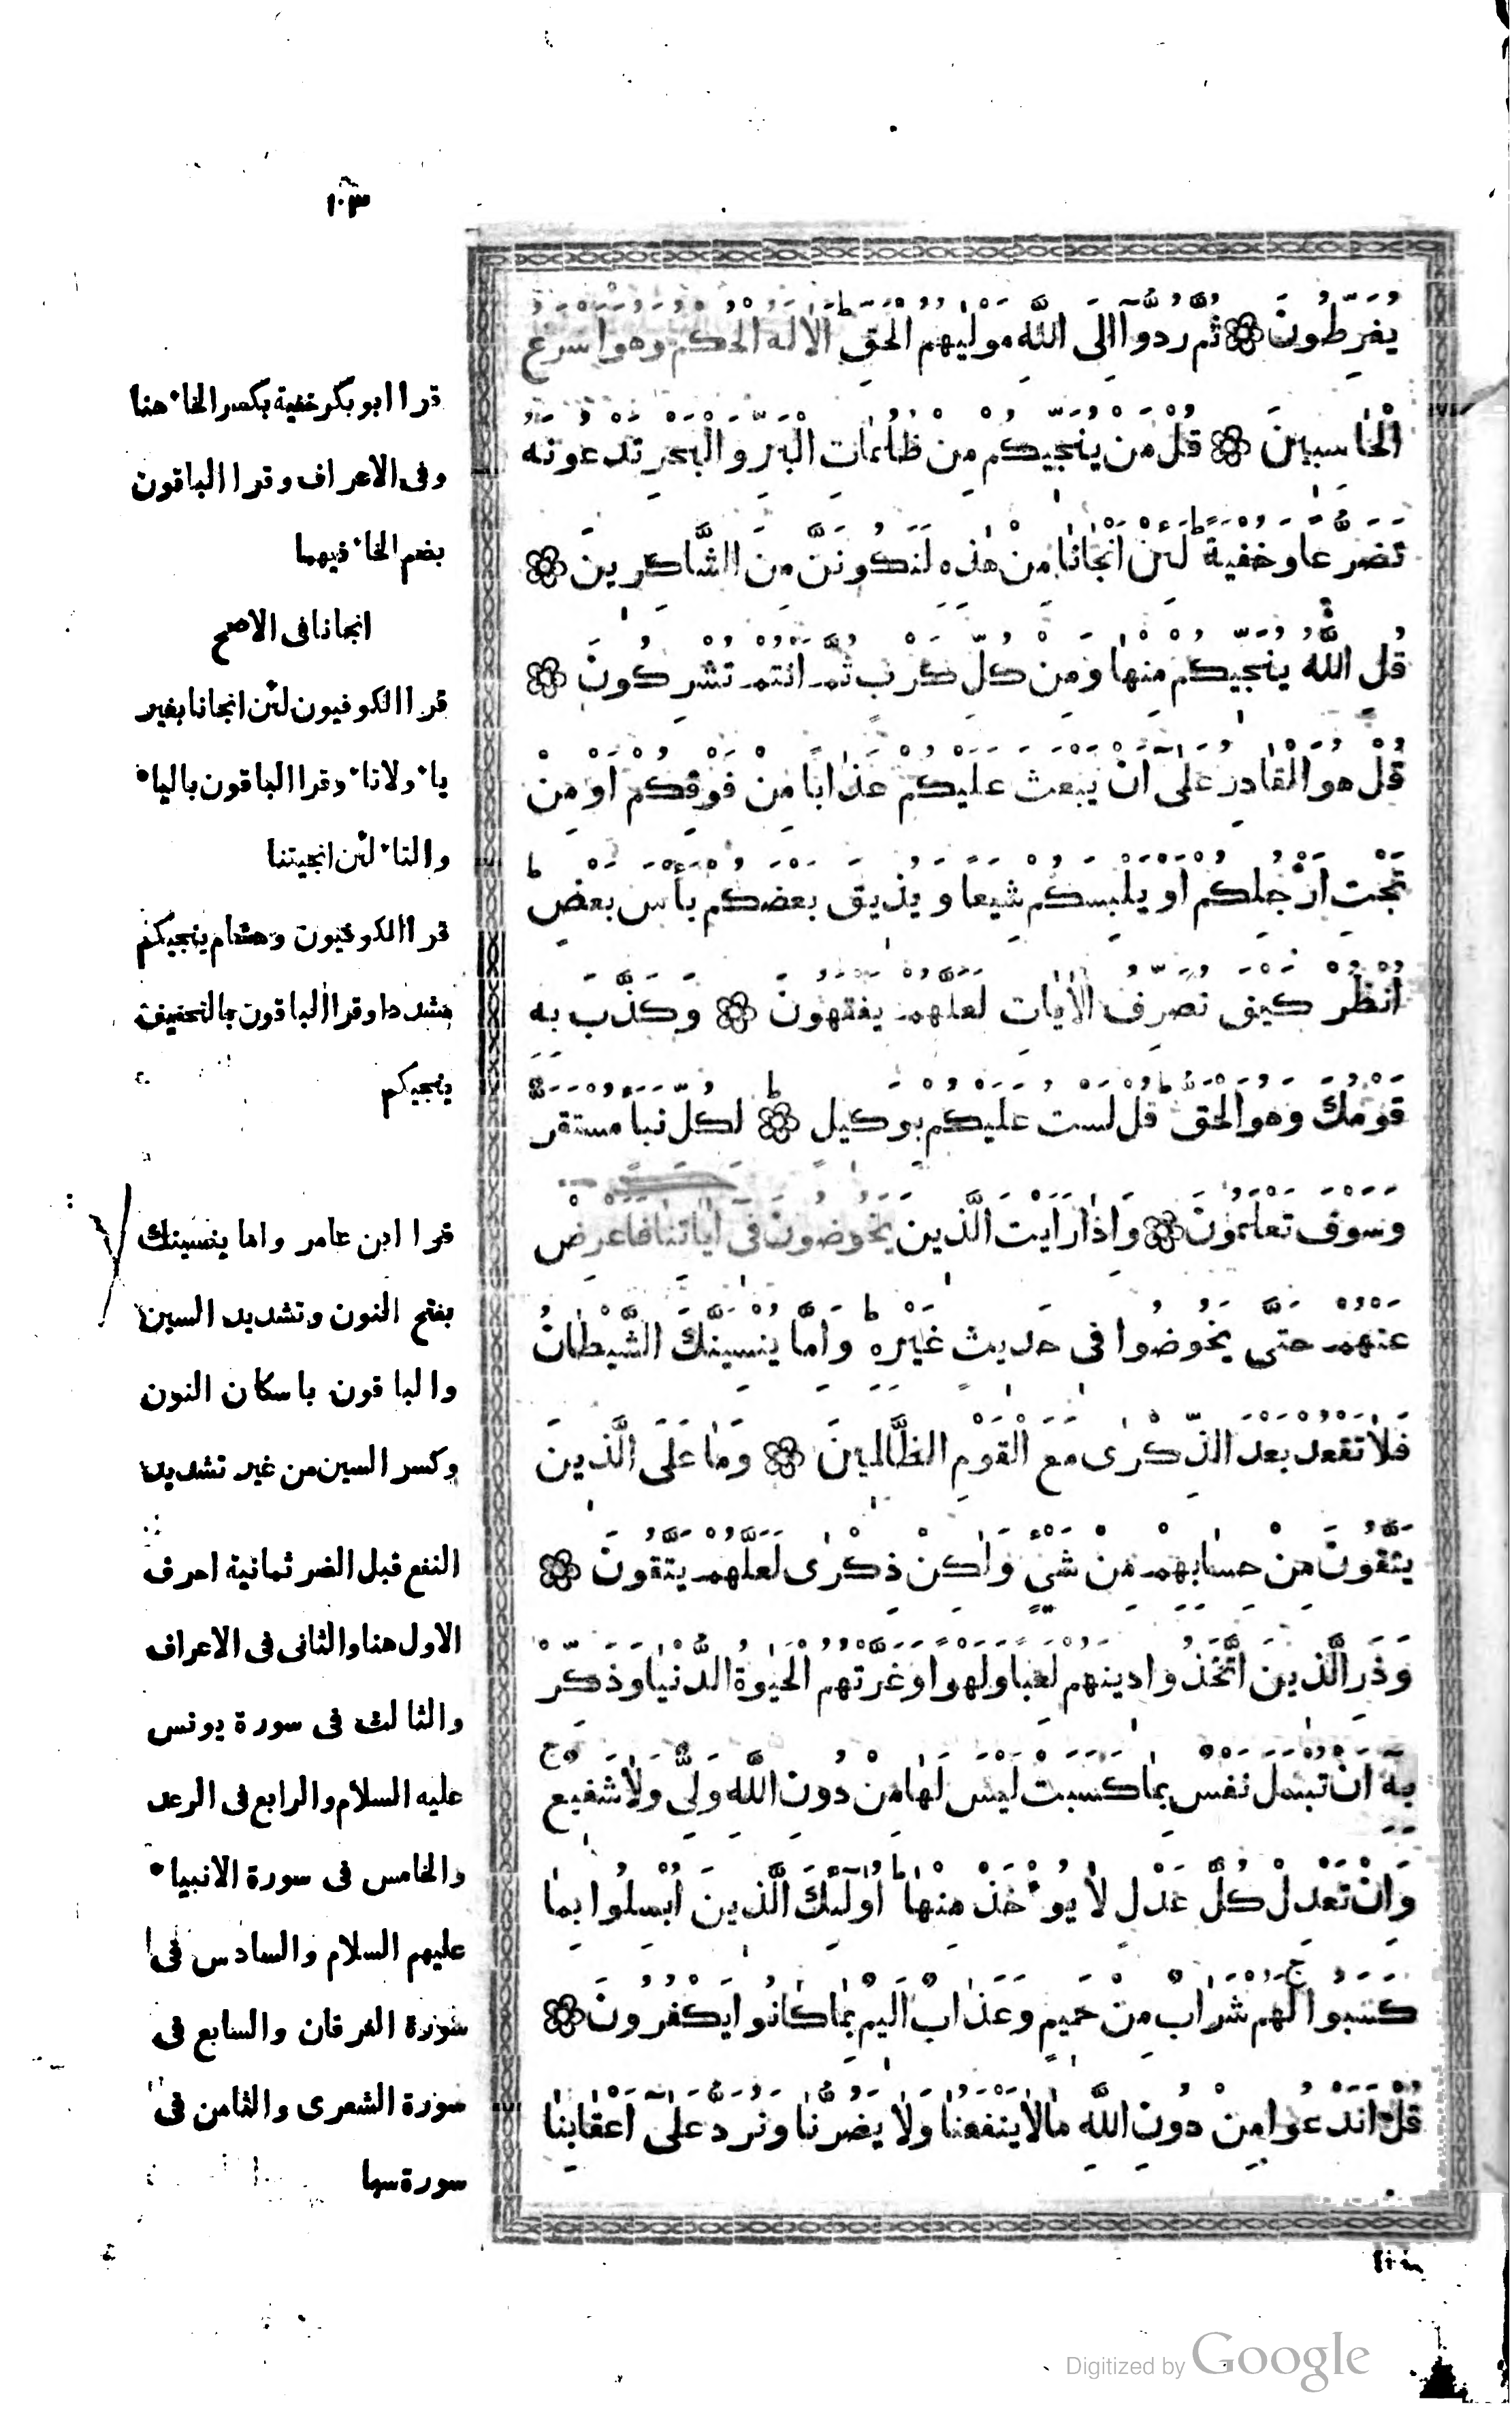 ١٠٣
يُفَرِّطُونَ ۞ ثُمَّ رُدُّوٓا اِلَى اللّٰهِ مَوْلٰيهُمُ الْحَقِّ ط اَلَا لَهُ الْحُكْمُ وَهُوَ اَسْرَعُ
الْحَاسِبِينَ ۞ قُلْ مَنْ يُنَجِّيكُمْ مِنْ ظُلُمَاتِ الْبَرِّ وَالْبَحْرِ تَدْعُونَهُ
تَضَرُّعًا وَخُفْيَةً ط لَئِنْ اَنْجَانَا مِنْ هٰذِهِ لَنَكُونَنَّ مِنَ الشَّاكِرِينَ ۞
قُلِ اللّٰهُ يُنَجِّيكُمْ مِنْهَا وَمِنْ كُلِّ كَرْبٍ ثُمَّ اَنْتُمْ تُشْرِكُونَ ۞
قُلْ هُوَ الْقَادِرُ عَلٰٓى اَنْ يَبْعَثَ عَلَيْكُمْ عَذَابًا مِنْ فَوْقِكُمْ اَوْ مِنْ
تَحْتِ اَرْجُلِكُمْ اَوْ يَلْبِسَكُمْ شِيَعًا وَيُذِيقَ بَعْضَكُمْ بَأْسَ بَعْضٍ ط
اُنْظُرْ كَيْفَ نُصَرِّفُ الْاٰيَاتِ لَعَلَّهُمْ يَفْقَهُونَ ۞ وَكَذَّبَ بِهِ
قَوْمُكَ وَهُوَ الْحَقُّ ط قُلْ لَسْتُ عَلَيْكُمْ بِوَكِيلٍ ۞ ط لِكُلِّ نَبَاٍ مُسْتَقَرٌّ
وَسَوْفَ تَعْلَمُونَ ۞ وَاِذَا رَاَيْتَ الَّذِينَ يَخُوضُونَ فِىٓ اٰيَاتِنَا فَاَعْرِضْ
عَنْهُمْ حَتّٰى يَخُوضُوا فِى حَدِيثٍ غَيْرِهِ ط وَاِمَّا يُنْسِيَنَّكَ الشَّيْطَانُ
فَلَا تَقْعُدْ بَعْدَ الذِّكْرٰى مَعَ الْقَوْمِ الظَّالِمِينَ ۞ وَمَا عَلَى الَّذِينَ
يَتَّقُونَ مِنْ حِسَابِهِمْ مِنْ شَىْءٍ وَلٰكِنْ ذِكْرٰى لَعَلَّهُمْ يَتَّقُونَ ۞
وَذَرِ الَّذِينَ اتَّخَذُوا دِينَهُمْ لَعِبًا وَلَهْوًا وَغَرَّتْهُمُ الْحَيٰوةُ الدُّنْيَا وَذَكِّرْ
بِهِ اَنْ تُبْسَلَ نَفْسٌ بِمَا كَسَبَتْ لَيْسَ لَهَا مِنْ دُونِ اللّٰهِ وَلِىٌّ وَلَا شَفِيعٌ ج
وَاِنْ تَعْدِلْ كُلَّ عَدْلٍ لَا يُؤْخَذْ مِنْهَا ط اُولٰٓئِكَ الَّذِينَ اُبْسِلُوا بِمَا
كَسَبُوا ج لَهُمْ شَرَابٌ مِنْ حَمِيمٍ وَعَذَابٌ اَلِيمٌ بِمَا كَانُوا يَكْفُرُونَ ۞
قُلْ اَنَدْعُوا مِنْ دُونِ اللّٰهِ مَا لَا يَنْفَعُنَا وَلَا يَضُرُّنَا وَنُرَدُّ عَلٰٓى اَعْقَابِنَا
قرا ابو بكر خفية بكسر الخاء هنا
وفى الاعراف وقرا الباقون
بضم الخاء فيهما
انجانا فى الاصح
قرا الكوفيون لئن انجانا بغير
ياء ولا تاء وقرا الباقون بالياء
والتاء لئن انجيتنا
قرا الكوفيون وهشام ينجيكم
مشددا وقرا الباقون بالتخفيف
ينجيكم
قرا ابن عامر واما ينسينك
بفتح النون وتشديد السين
والباقون باسكان النون
وكسر السين من غير تشديد
النفع قبل الضر ثمانية احرف
الاول هنا والثانى فى الاعراف
والثالث فى سورة يونس
عليه السلام والرابع فى الرعد
والخامس فى سورة الانبياء
عليهم السلام والسادس فى
سورة الفرقان والسابع فى
سورة الشعرى والثامن فى
سورة سبا
Digitized by Google